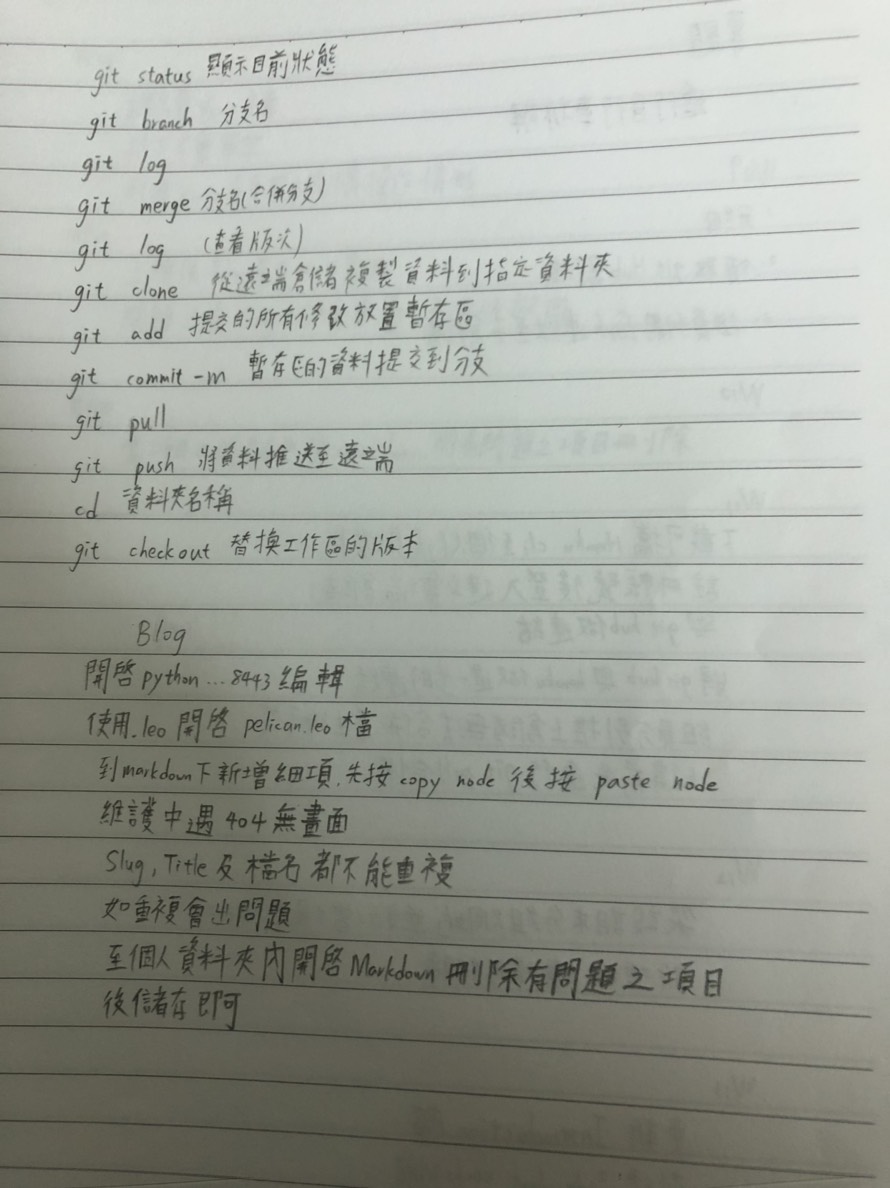 git status 顯示目前狀態
git branch 分支名
git log
git merge 分支名(合併分支)
git log (查看版次)
git clone 從遠端倉儲複製資料到指定資料夾
git add 提交的所有修改放置暫存區
git commit -m 暫存區的資料提交到分支
git pull
git push 將資料推送至遠端
cd 資料夾名稱
git checkout 替換工作區的版本
Blog
開啓python...8443編輯
使用.leo開啓 pelican.leo 檔
到markdown下新增細項,先按 copy node 後按 paste node
維護中遇404無畫面
Slug, Title及檔名都不能重複
如重複會出問題
至個人資料夾內開啓Markdown刪除有問題之項目
後儲存即可